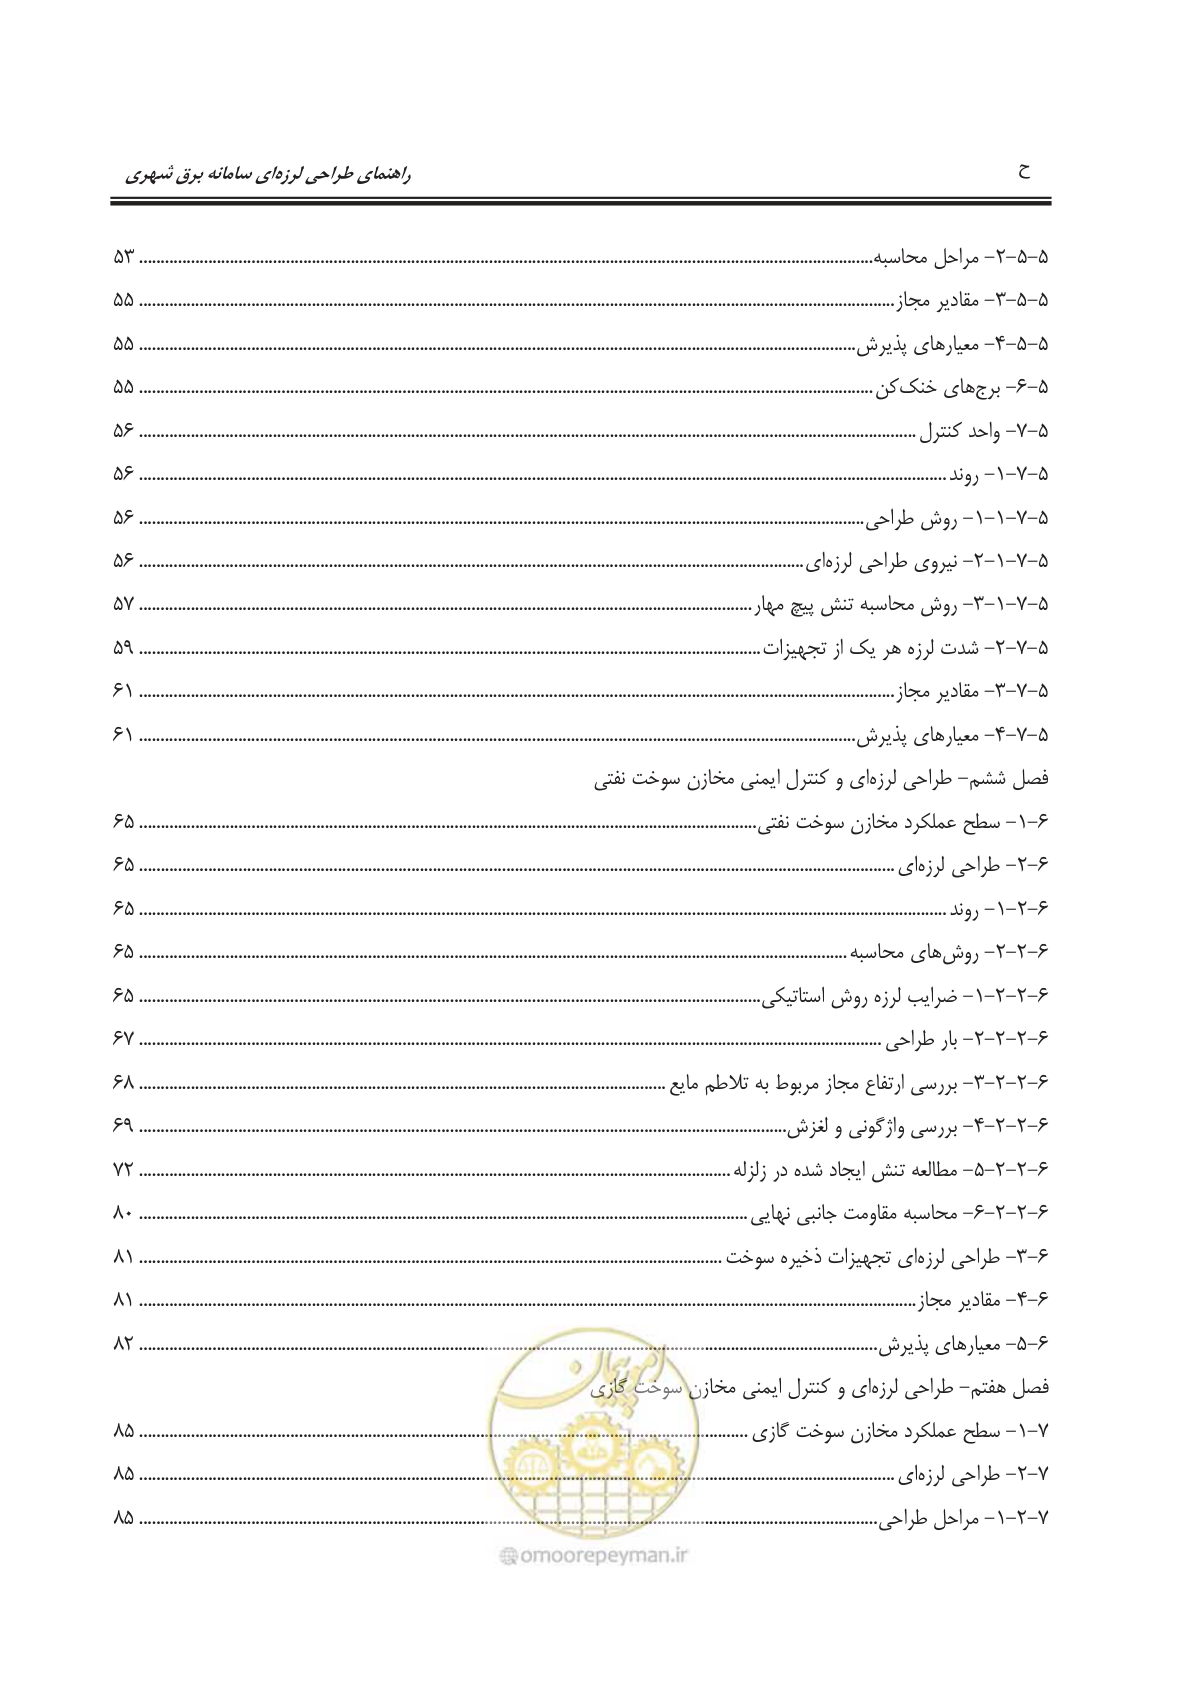 ح
راهنمای طراحی لرزه‌ای سامانه برق شهری
۵-۵-۲- مراحل محاسبه ۵۳
۵-۵-۳- مقادیر مجاز ۵۵
۵-۵-۴- معیارهای پذیرش ۵۵
۵-۶- برج‌های خنک‌کن ۵۵
۵-۷- واحد کنترل ۵۶
۵-۷-۱- روند ۵۶
۵-۷-۱-۱- روش طراحی ۵۶
۵-۷-۱-۲- نیروی طراحی لرزه‌ای ۵۶
۵-۷-۱-۳- روش محاسبه تنش پیچ مهار ۵۷
۵-۷-۲- شدت لرزه هر یک از تجهیزات ۵۹
۵-۷-۳- مقادیر مجاز ۶۱
۵-۷-۴- معیارهای پذیرش ۶۱
فصل ششم- طراحی لرزه‌ای و کنترل ایمنی مخازن سوخت نفتی
۶-۱- سطح عملکرد مخازن سوخت نفتی ۶۵
۶-۲- طراحی لرزه‌ای ۶۵
۶-۲-۱- روند ۶۵
۶-۲-۲- روش‌های محاسبه ۶۵
۶-۲-۲-۱- ضرایب لرزه روش استاتیکی ۶۵
۶-۲-۲-۲- بار طراحی ۶۷
۶-۲-۲-۳- بررسی ارتفاع مجاز مربوط به تلاطم مایع ۶۸
۶-۲-۲-۴- بررسی واژگونی و لغزش ۶۹
۶-۲-۲-۵- مطالعه تنش ایجاد شده در زلزله ۷۲
۶-۲-۲-۶- محاسبه مقاومت جانبی نهایی ۸۰
۶-۳- طراحی لرزه‌ای تجهیزات ذخیره سوخت ۸۱
۶-۴- مقادیر مجاز ۸۱
۶-۵- معیارهای پذیرش ۸۲
فصل هفتم- طراحی لرزه‌ای و کنترل ایمنی مخازن سوخت گازی
۷-۱- سطح عملکرد مخازن سوخت گازی ۸۵
۷-۲- طراحی لرزه‌ای ۸۵
۷-۲-۱- مراحل طراحی ۸۵
امور پیمان
@omoorepeyman.ir